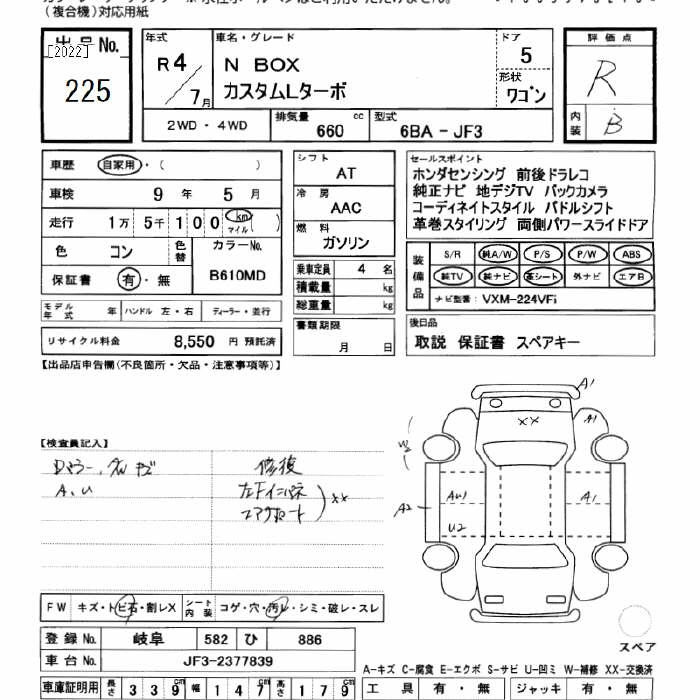 (複合機)対応用紙
出品No.
[2022]
225
年式
R4/7月
車名・グレード
N BOX
カスタムLターボ
ドア
5
形状
ワゴン
評価点
R
内装
B
2WD・4WD
排気量 660 cc
型式 6BA-JF3
車歴 自家用・( )
車検 9年 5月
走行 1万5千100 km マイル ( )
色 コン
色替
カラーNo.
B610MD
保証書 有・無
モデル年式 年
ハンドル 左・右
ディーラー・並行
リサイクル料金 8,550 円 預託済
シフト
AT
冷房
AAC
燃料
ガソリン
乗車定員 4 名
積載量 kg
総重量 kg
書類期限
月 日
セールスポイント
ホンダセンシング 前後ドラレコ
純正ナビ 地デジTV バックカメラ
コーディネイトスタイル パドルシフト
革巻スタイリング 両側パワースライドドア
装備品
S/R 純A/W P/S P/W ABS
純TV 純ナビ 革シート 外ナビ エアB
ナビ型番: VXM-224VFi
後日品
取説 保証書 スペアキー
【出品店申告欄(不良箇所・欠品・注意事項等)】
【検査員記入】
A、U
修復
XX
A1
XX
A1
W2
A2
AU1
A1
U2
スペア
FW キズ・トビ石・割レX
シート内装 コゲ・穴・汚レ・シミ・破レ・スレ
登録No. 岐阜 582 ひ 886
車台No. JF3-2377839
車庫証明用 長さ 339cm 幅 147cm 高さ 179cm
A-キズ C-腐食 E-エクボ S-サビ U-凹ミ W-補修 XX-交換済
工具 有・無 ジャッキ 有・無